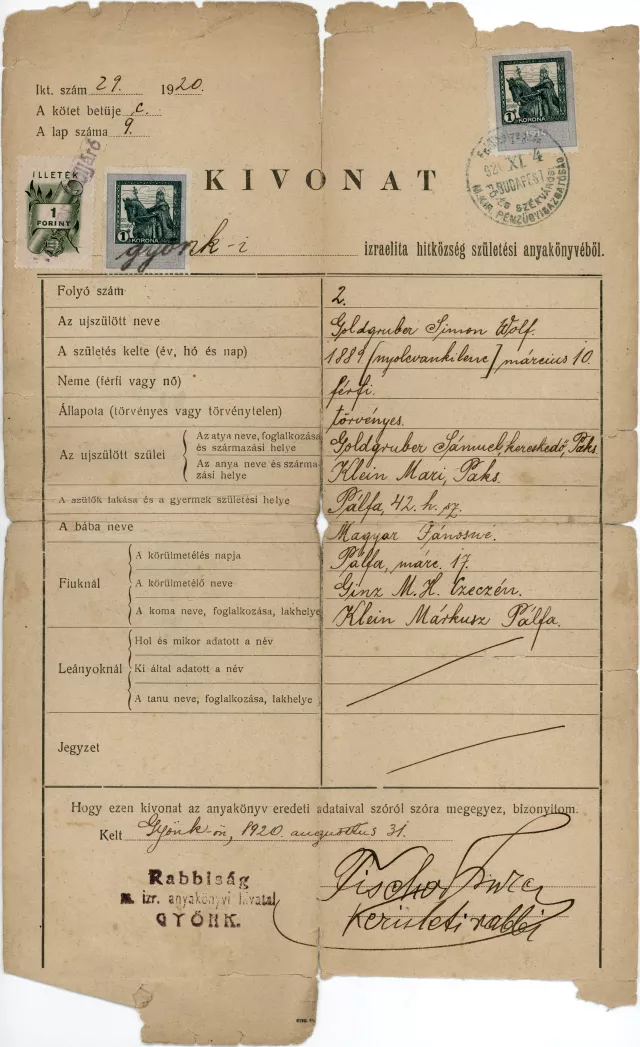 Ikt. szám 29. 1920.
A kötet betüje c.
A lap száma 9.
ILLETÉK
1
FORINT
1 KORONA
1 KORONA
XI. 4
BUDAPEST
KIVONAT
gyönk-i izraelita hitközség születési anyakönyvéből.
Folyó szám 2.
Az ujszülött neve Goldgruber Simon Wolf.
A születés kelte (év, hó és nap) 1889 [nyolcvankilenc] március 10.
Neme (férfi vagy nő) férfi.
Állapota (törvényes vagy törvénytelen) törvényes.
Az ujszülött szülei
Az atya neve, foglalkozása és származási helye Goldgruber Sámuel, kereskedő, Paks.
Az anya neve és származási helye Klein Mari, Paks.
A szülők lakása és a gyermek születési helye Pálfa, 42. h. sz.
A bába neve Magyar Jánosné.
Fiuknál
A körülmetélés napja Pálfa, márc. 17.
A körülmetélő neve Ginz M. H.
A koma neve, foglalkozása, lakhelye Klein Márkusz Pálfa.
Leányoknál
Hol és mikor adatott a név
Ki által adatott a név
A tanu neve, foglalkozása, lakhelye
Jegyzet
Hogy ezen kivonat az anyakönyv eredeti adataival szóról szóra megegyez, bizonyitom.
Kelt Gyönk-ön, 1920. augusztus 31.
Rabbiság
m. izr. anyakönyvi hivatal
GYÖNK.
kerületi rabbi